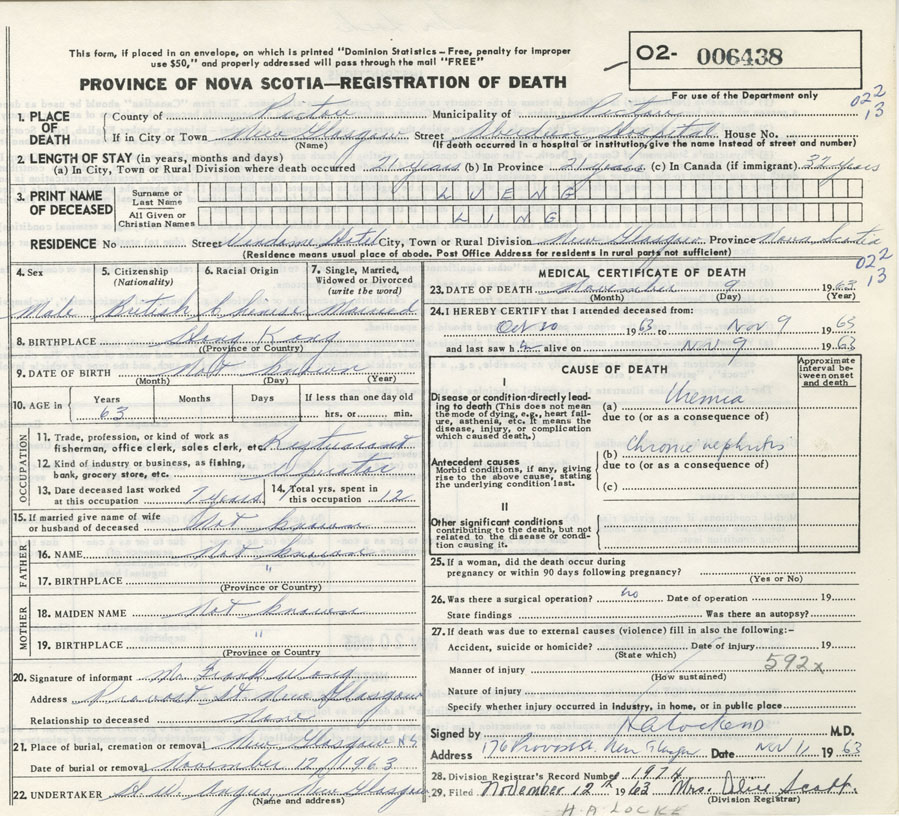 This form, if placed in an envelope, on which is printed "Dominion Statistics – Free, penalty for improper
use $50," and properly addressed will pass through the mail "FREE"
PROVINCE OF NOVA SCOTIA—REGISTRATION OF DEATH
O2- 006438
For use of the Department only
022
13
1. PLACE OF DEATH
County of Pictou Municipality of Pictou
If in City or Town New Glasgow Street Aberdeen Hospital House No.
(Name) (If death occurred in a hospital or institution, give the name instead of street and number)
2. LENGTH OF STAY (in years, months and days)
(a) In City, Town or Rural Division where death occurred 21 years (b) In Province 21 years (c) In Canada (if immigrant) 37 years
3. PRINT NAME OF DECEASED
Surname or Last Name LUENG
All Given or Christian Names LING
RESIDENCE No Street Hotel City, Town or Rural Division New Glasgow Province Nova Scotia
(Residence means usual place of abode. Post Office Address for residents in rural parts not sufficient)
022
13
4. Sex Male
5. Citizenship (Nationality) British
6. Racial Origin Chinese
7. Single, Married, Widowed or Divorced (write the word) Married
8. BIRTHPLACE Hong Kong
(Province or Country)
9. DATE OF BIRTH Not known
(Month) (Day) (Year)
10. AGE in Years 63 Months Days If less than one day old
hrs. or min.
OCCUPATION
11. Trade, profession, or kind of work as fisherman, office clerk, sales clerk, etc. Restaurant
12. Kind of industry or business, as fishing, bank, grocery store, etc. Operator
13. Date deceased last worked at this occupation 7 years
14. Total yrs. spent in this occupation 12
15. If married give name of wife or husband of deceased Not known
FATHER
16. NAME Not known
17. BIRTHPLACE "
(Province or Country)
MOTHER
18. MAIDEN NAME Not known
19. BIRTHPLACE "
(Province or Country)
20. Signature of informant Mr Frank Wong
Address Provost St New Glasgow
Relationship to deceased None
21. Place of burial, cremation or removal New Glasgow NS
Date of burial or removal November 12/1963
22. UNDERTAKER H. W. Angus New Glasgow
(Name and address)
MEDICAL CERTIFICATE OF DEATH
23. DATE OF DEATH November 9 1963
(Month) (Day) (Year)
24. I HEREBY CERTIFY that I attended deceased from:
Oct 20 1963 to Nov 9 1963
and last saw him alive on Nov 9 1963
CAUSE OF DEATH
Approximate interval between onset and death
I
Disease or condition directly leading to death (This does not mean the mode of dying, e.g., heart failure, asthenia, etc. It means the disease, injury, or complication which caused death.)
(a) Uremia
due to (or as a consequence of)
Antecedent causes
Morbid conditions, if any, giving rise to the above cause, stating the underlying condition last.
(b) Chronic nephritis
due to (or as a consequence of)
(c)
II
Other significant conditions
contributing to the death, but not related to the disease or condition causing it.
25. If a woman, did the death occur during
pregnancy or within 90 days following pregnancy?
(Yes or No)
26. Was there a surgical operation? no Date of operation 19
State findings Was there an autopsy?
27. If death was due to external causes (violence) fill in also the following:–
Accident, suicide or homicide? Date of injury 19
(State which)
592x
Manner of injury
(How sustained)
Nature of injury
Specify whether injury occurred in industry, in home, or in public place
Signed by M.D.
Address 176 Provost St. New Glasgow Date Nov 11 1963
28. Division Registrar's Record Number 1974
29. Filed November 12th 1963 Mrs. Alice Scott
(Division Registrar)
H.A. LOCKE